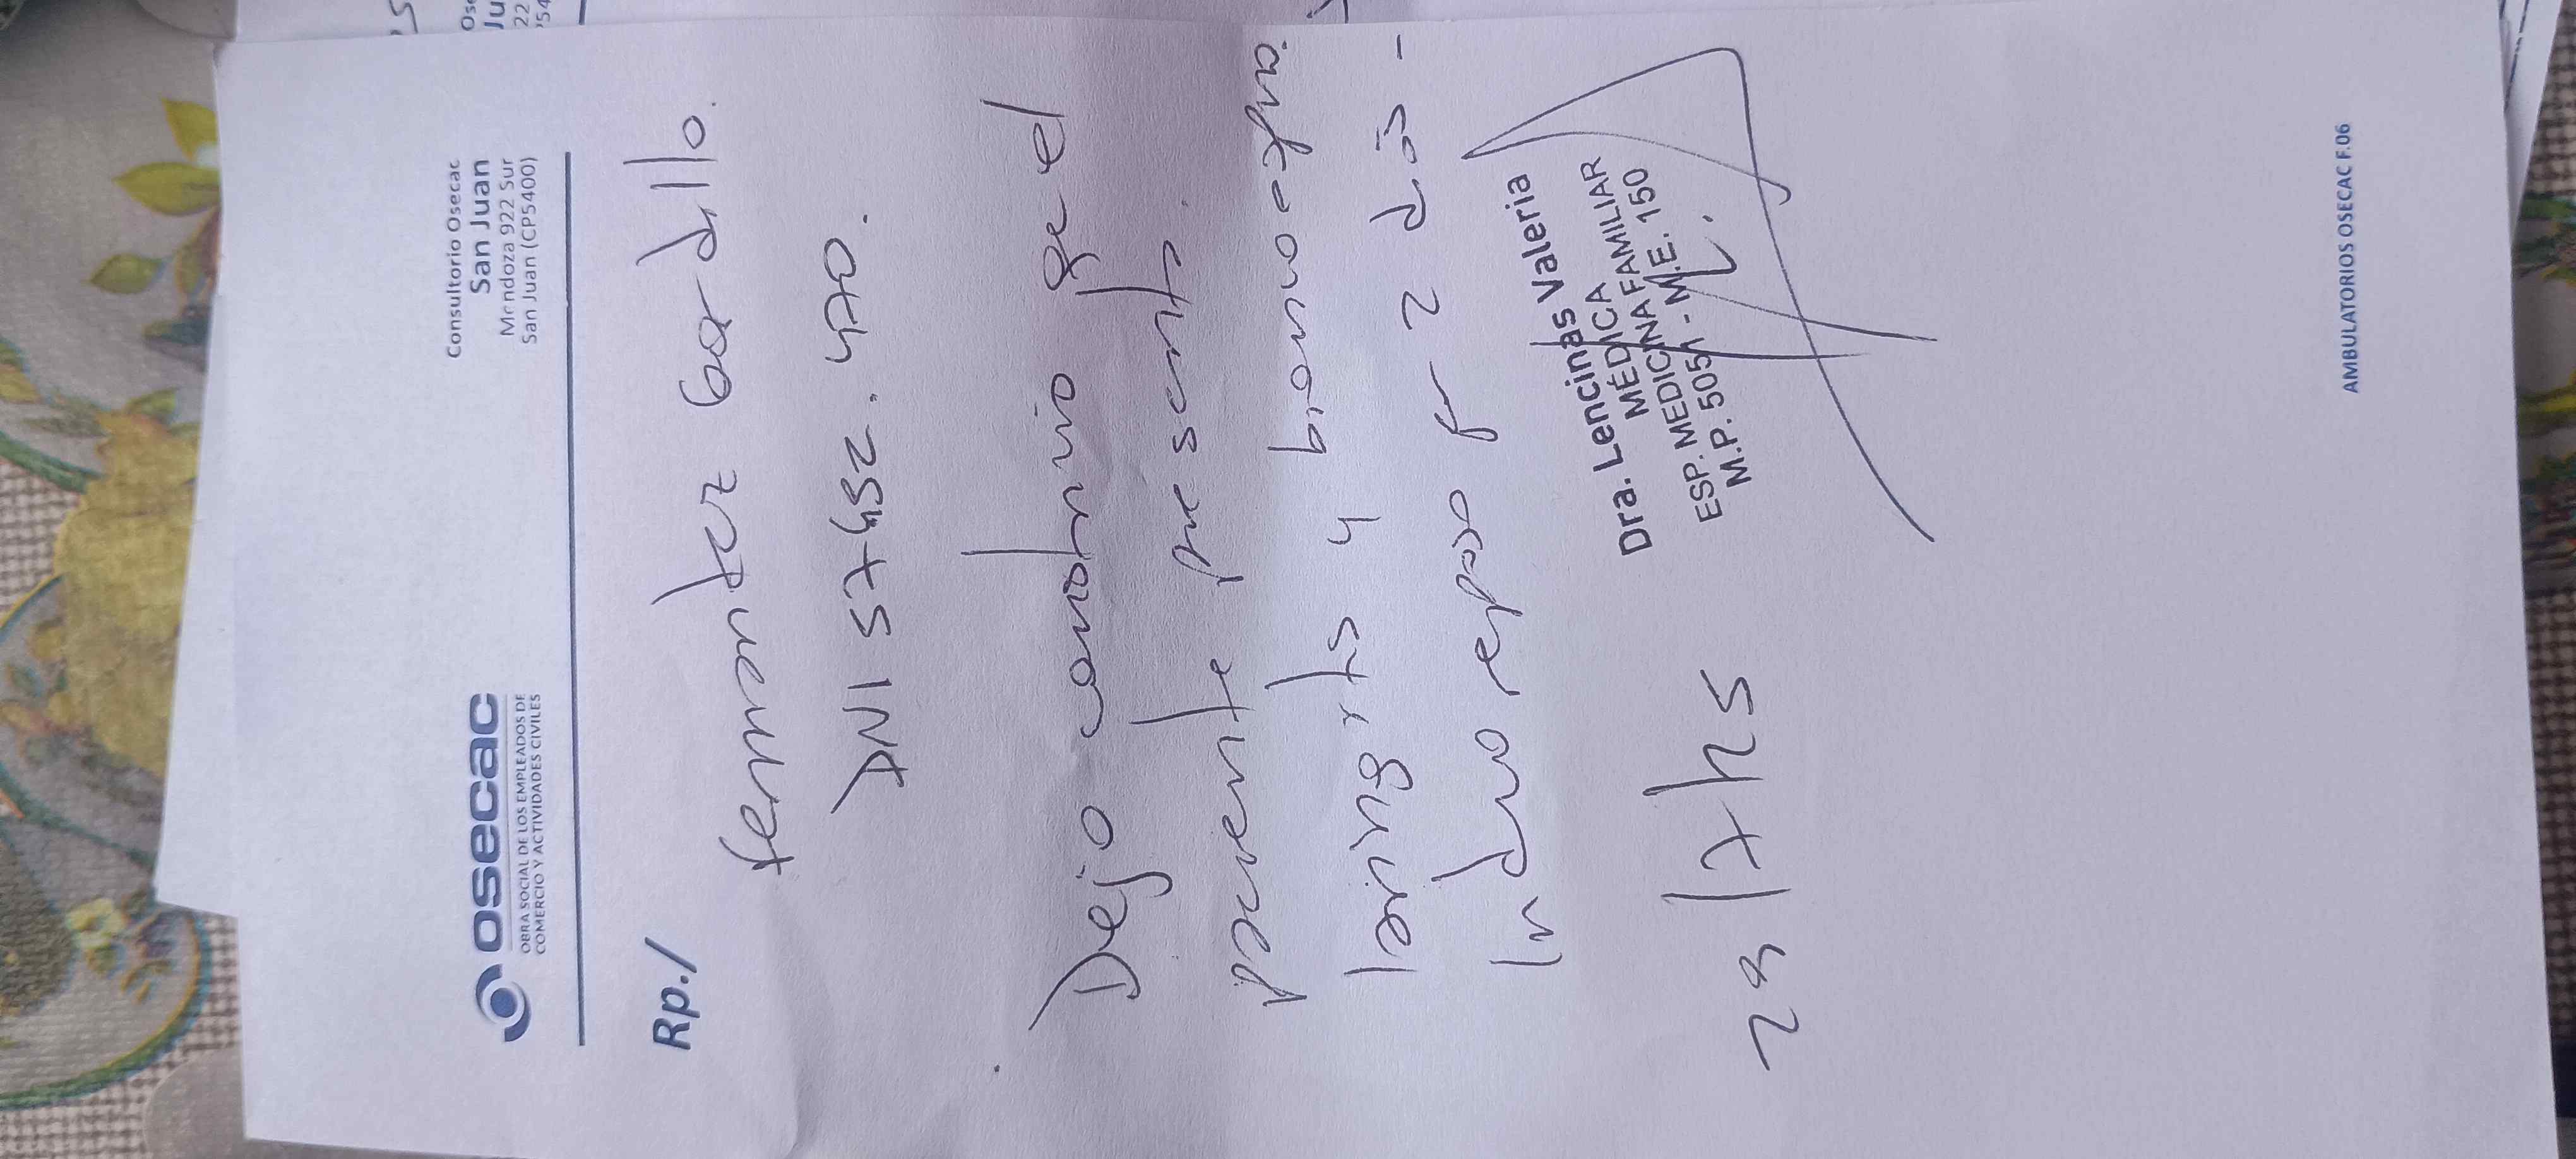 osecac
OBRA SOCIAL DE LOS EMPLEADOS DE
COMERCIO Y ACTIVIDADES CIVILES
Consultorio Osecac
San Juan
Mendoza 922 Sur
San Juan (CP5400)
Rp./
Fernandez Gordillo.
DNI 57452.470.
Dejo constancia que el
paciente presenta
laringitis y broncoespa
Indico reposo por 2 dias -
Dra. Lencinas Valeria
MÉDICA
ESP. MEDICINA FAMILIAR
M.P. 5051 - M.E. 150
AMBULATORIOS OSECAC F.06